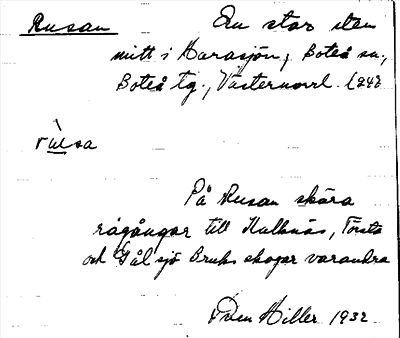 Rusan En stor sten
mitt i Harasjön, Boteå sn.,
Boteå tg., Västernorrl. l.
På Rusan skära
rågångar till Kulknäs, Torsta
och Gålsjö Bruks skogar varandra
Hiller 1932